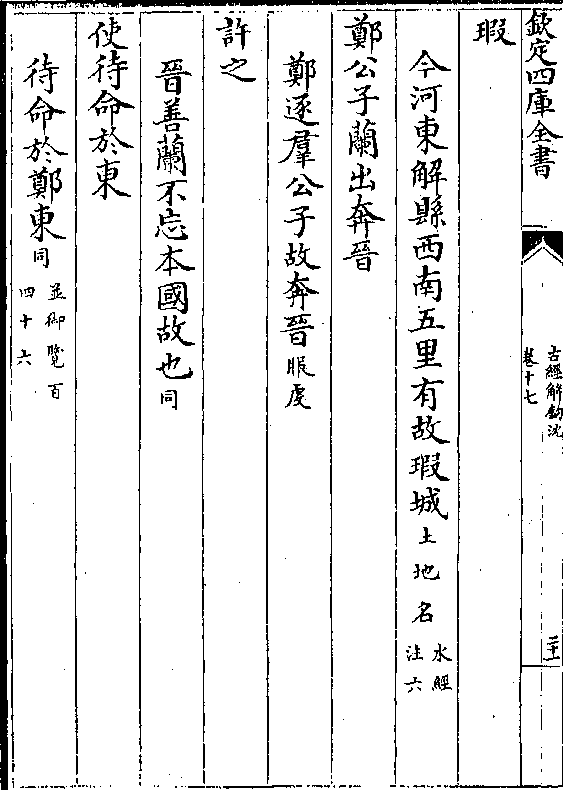 欽定四庫全書
古經解鉤沈
卷十七
二十一
瑕
今河東解縣西南五里有故瑕城土地名水經
注六
鄭公子蘭出奔晉
鄭逐羣公子故奔晉服虔
許之
晉善蘭不忘本國故也同
使待命於東
待命於鄭東同並御覽百
四十六